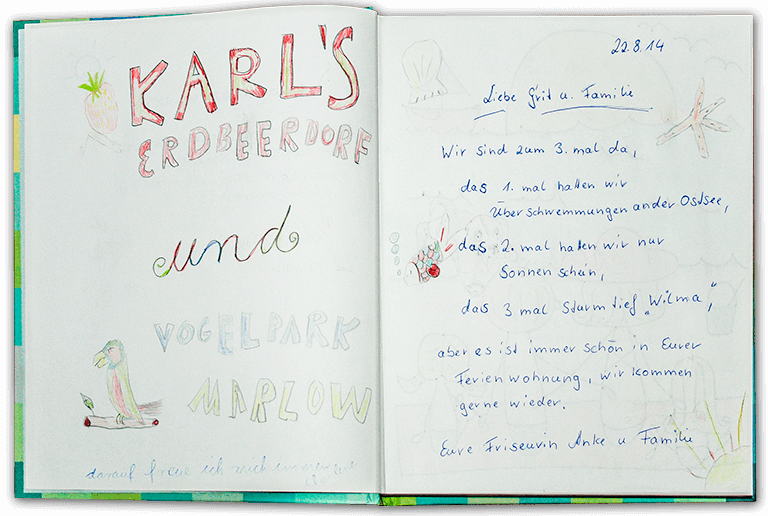 KARL'S
ERDBEERDORF
und
VOGELPARK
MARLOW
darauf freue ich mich immer
22.8.14
Liebe Grit u. Familie
Wir sind zum 3. mal da,
das 1. mal hatten wir
Überschwemmungen ander Ostsee,
das 2. mal hatten wir nur
Sonnen schein,
das 3 mal Sturmtief „Wilma",
aber es ist immer schön in Eurer
Ferienwohnung, wir kommen
gerne wieder.
Eure Friseurin Anke u Familie